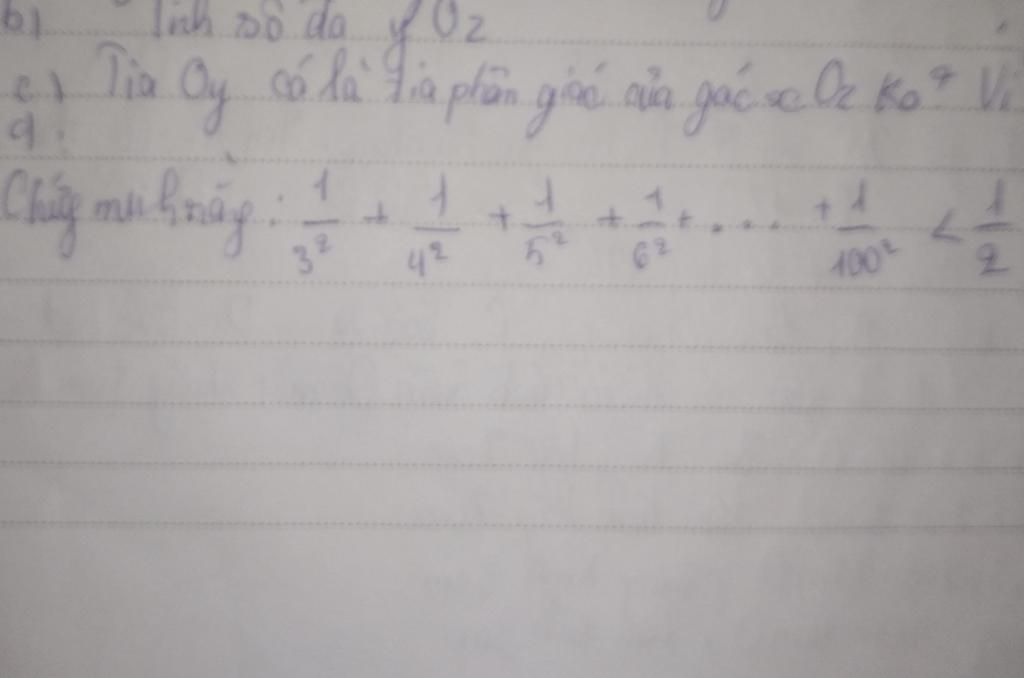 b) Tính số đo yOz
c) Tia Oy có là tia phân giác của góc xOz ko? Vì
9:
Chứng minh rằng: 1/3² + 1/4² + 1/5² + 1/6² + .... + 1/100² < 1/2